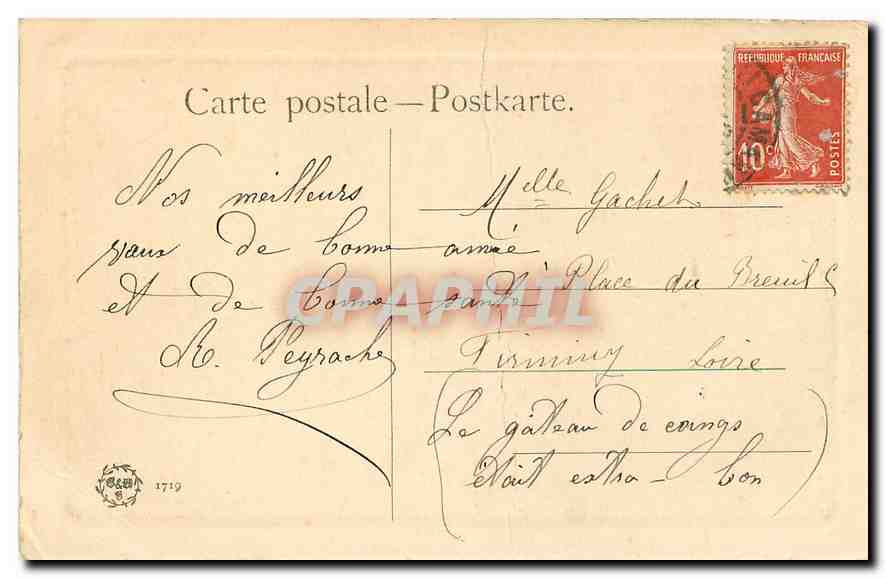 Carte postale — Postkarte.
REPUBLIQUE FRANÇAISE
10c
POSTES
Nos meilleurs
vœux de bonne année
et de bonne santé
R. Peyrache
Mlle Gachet
Place du Breuil
Firminy Loire
(Le gâteau de coings
était extra-bon)
CPAPHIL
1719